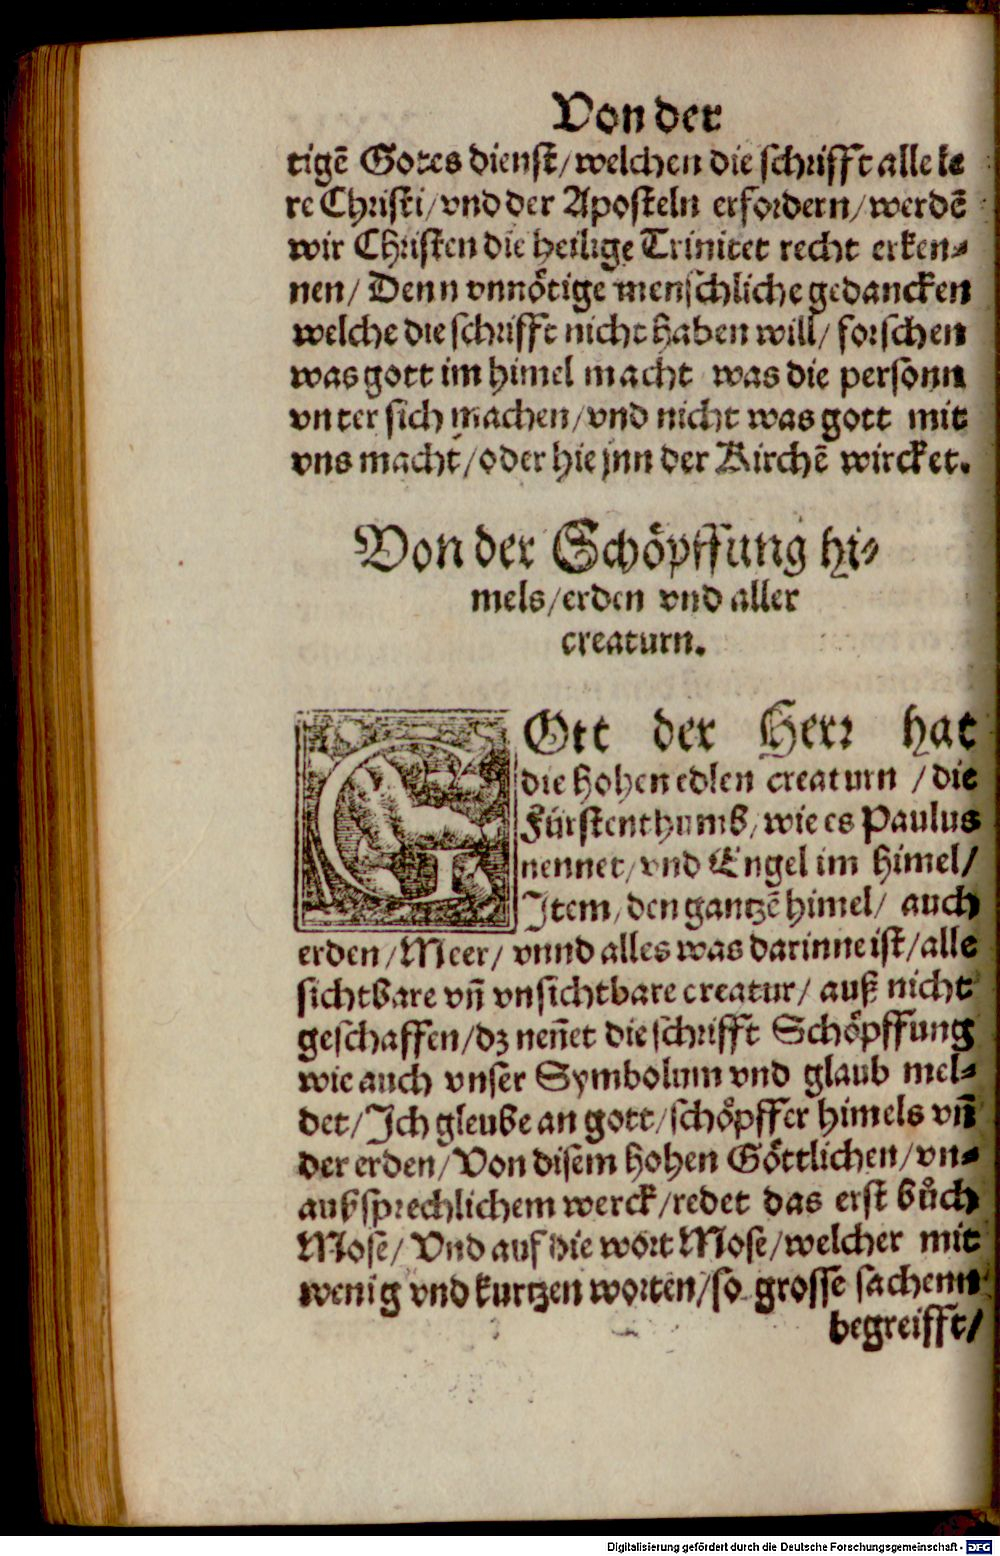 Von der
tigẽ Gotes dienst/welchen die schrifft alle le
re Christi/vnd der Aposteln erfordern/werdẽ
wir Christen die heilige Trinitet recht erken-
nen/ Denn vnnötige menschliche gedancken
welche die schrifft nicht haben will/ forschen
was gott im himel macht was die personn
vnter sich machen/vnd nicht was gott mit
vns macht/oder hie jnn der Kirchẽ wircket.
Von der Schöpffung hi-
mels/erden vnd aller
creaturn.
GOtt der Herr hat
die hohen edlen creaturn /die
Fürstenthumb/wie es Paulus
nennet/vnd Engel im himel/
Item/den gantzẽ himel/ auch
erden/Meer/ vnnd alles was darinne ist/alle
sichtbare vñ vnsichtbare creatur/ auß nicht
geschaffen/dz neñet die schrifft Schöpffung
wie auch vnser Symbolum vnd glaub mel-
det/Ich gleube an gott/schöpffer himels vñ
der erden/Von disem hohen Göttlichen/vn-
aubsprechlichem werck/redet das erst bůch
Mose/ Vnd auf die wort Mose/welcher mit
wenig vnd kurtzen worten/so grosse sachenn
begreifft/
Digitalisierung gefördert durch die Deutsche Forschungsgemeinschaft - DFG